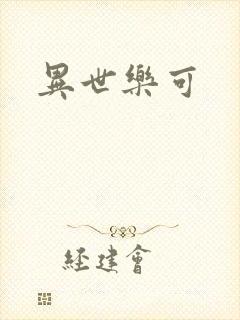 異世樂可
经建會